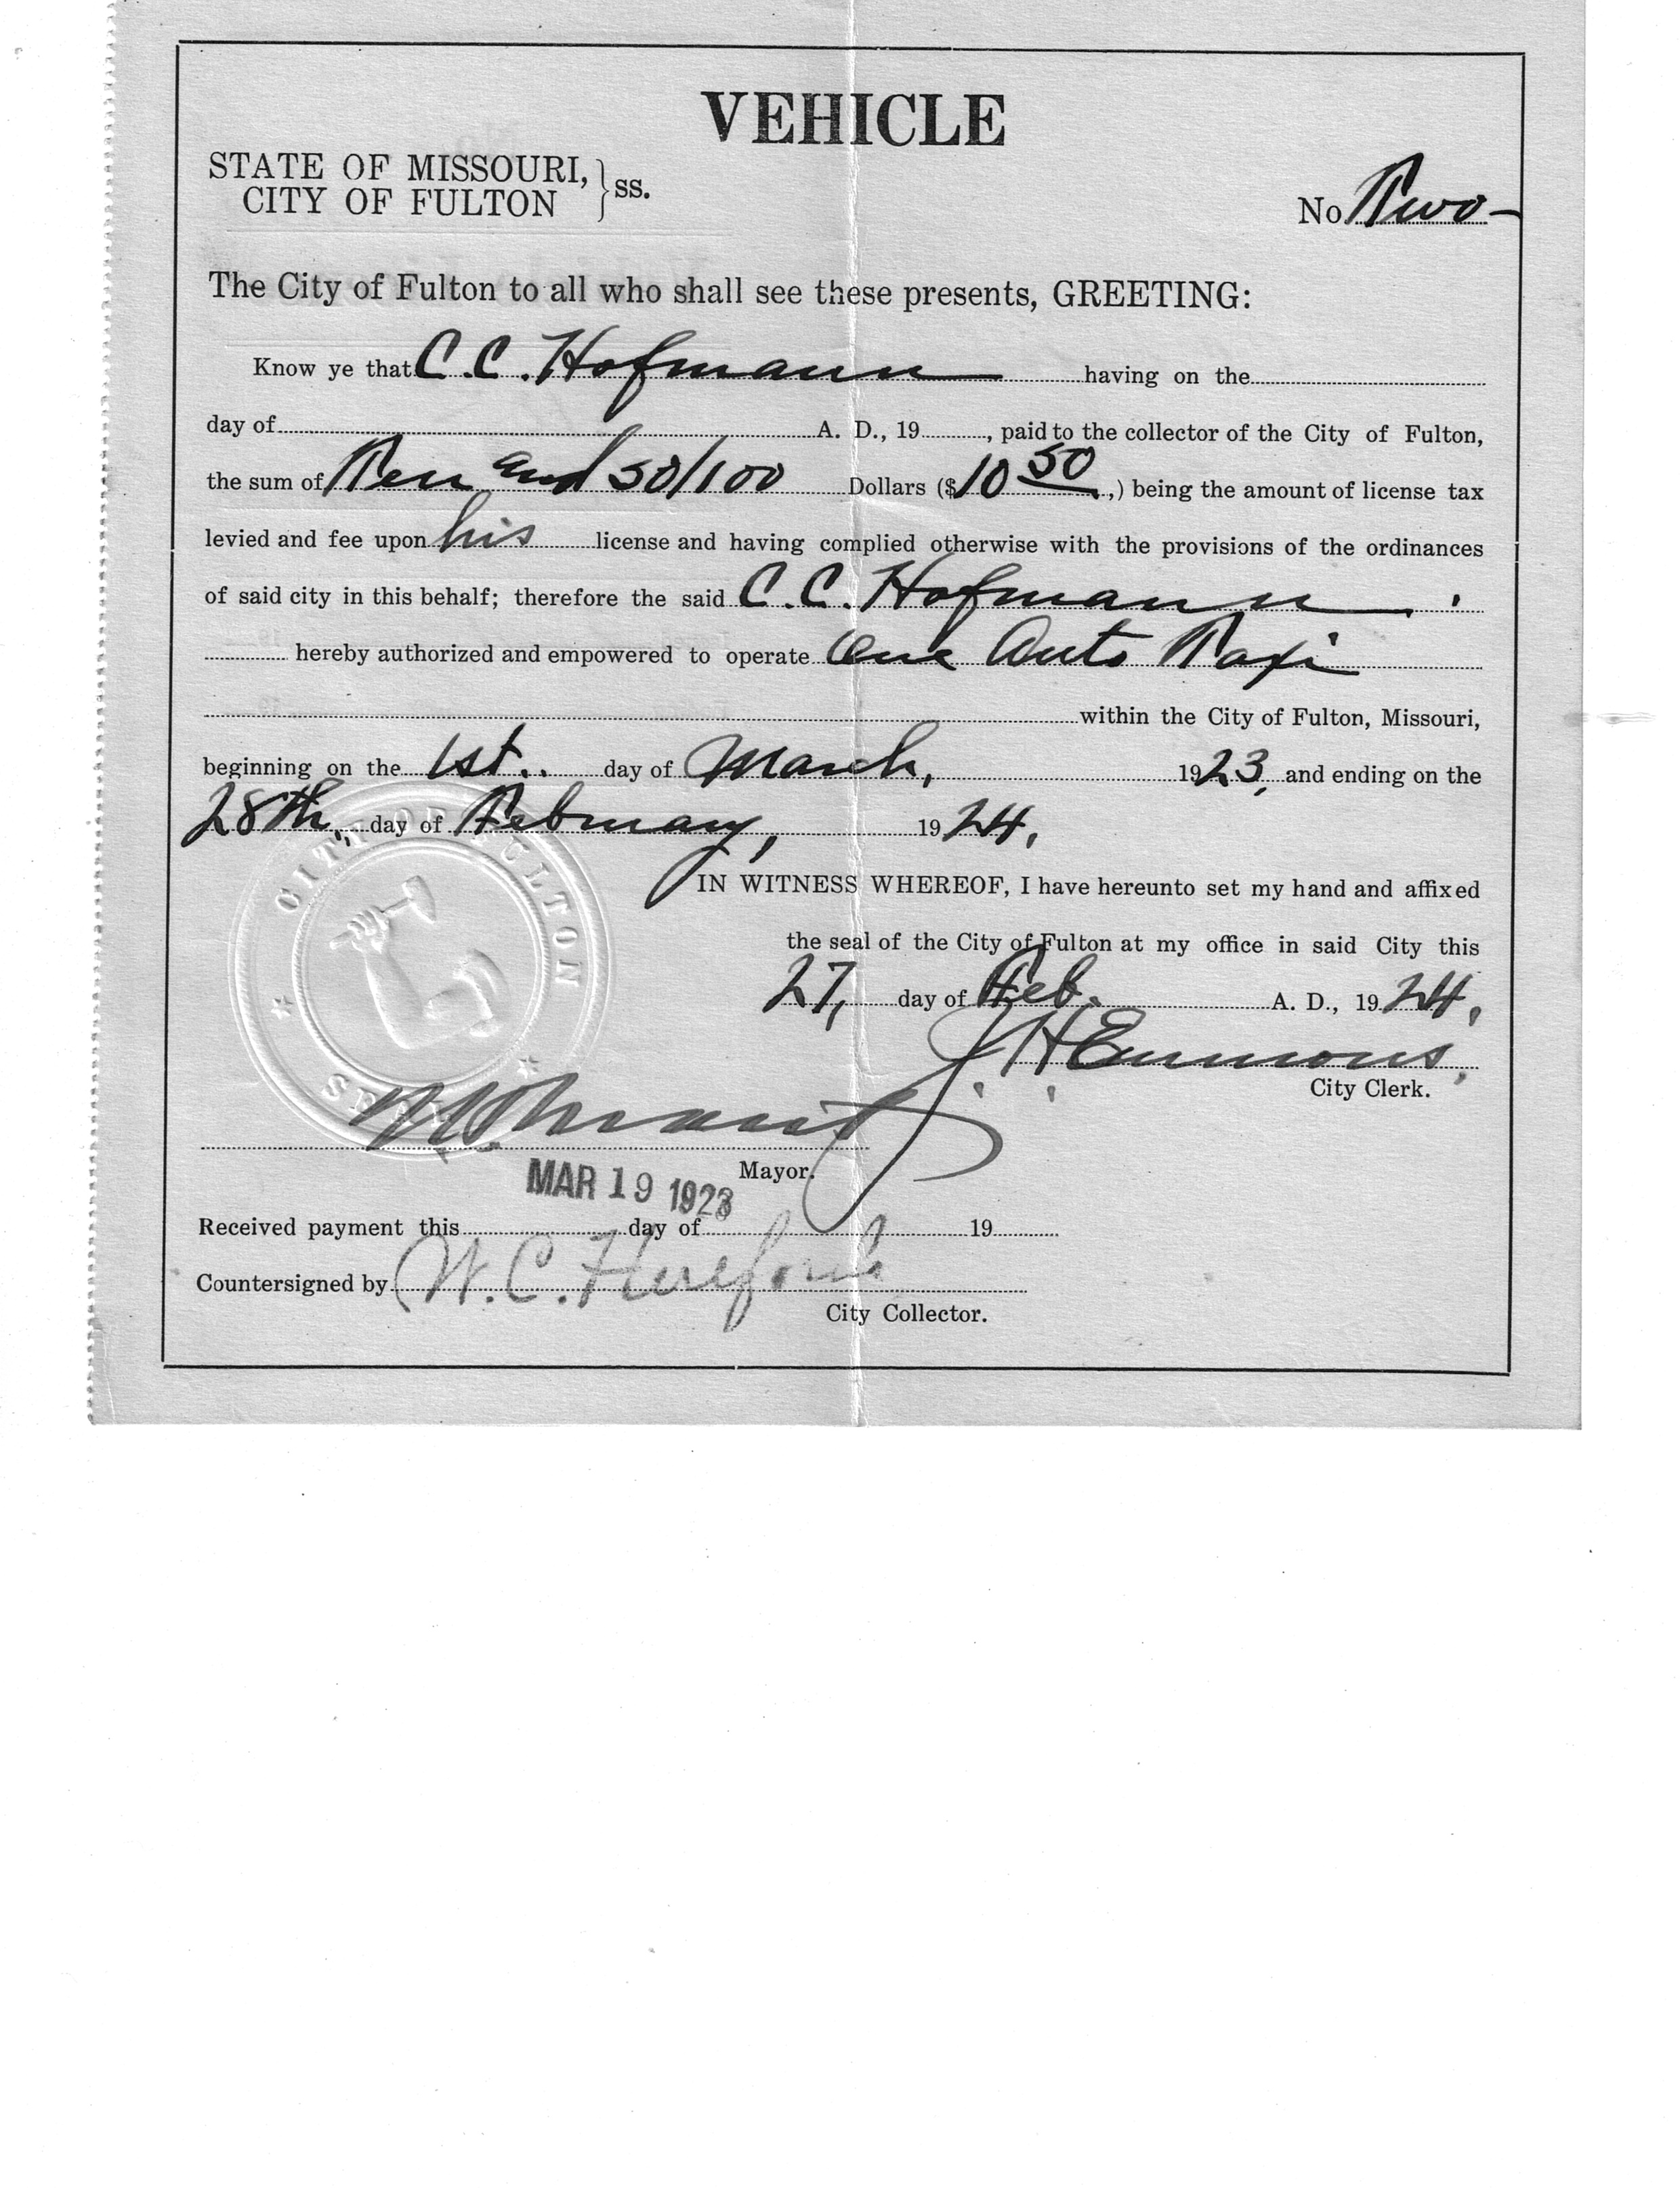 VEHICLE
STATE OF MISSOURI,
CITY OF FULTON } ss.
No Two-
The City of Fulton to all who shall see these presents, GREETING:
Know ye that C.C. Hofmann having on the
day of A. D., 19, paid to the collector of the City of Fulton,
the sum of Ten and 50/100 Dollars ($10 50,) being the amount of license tax
levied and fee upon his license and having complied otherwise with the provisions of the ordinances
of said city in this behalf; therefore the said C.C. Hofmann
hereby authorized and empowered to operate One Auto Taxi
within the City of Fulton, Missouri,
beginning on the 1st.. day of March, 1923, and ending on the
28th, day of February, 1924,
IN WITNESS WHEREOF, I have hereunto set my hand and affixed
the seal of the City of Fulton at my office in said City this
27, day of Feb. A. D., 1924,
J. H. Emmons,
City Clerk.
CITY OF FULTON
SEAL
Mayor.
MAR 19 1923
Received payment this day of 19
Countersigned by W.C. Hereford
City Collector.